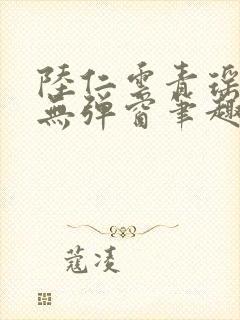 陸仁雲青瑶
無彈窗筆趣
蔻凌